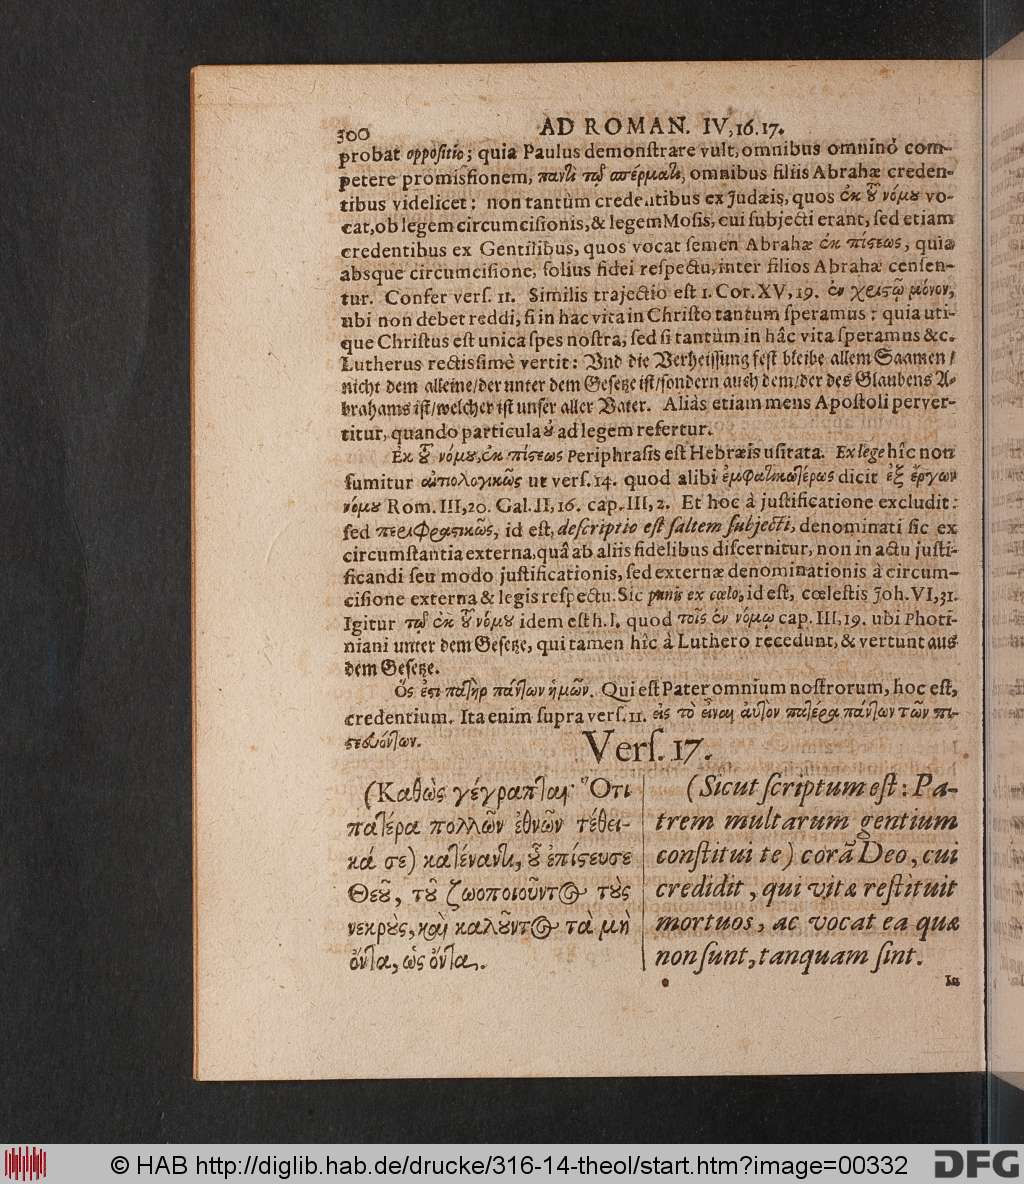 300
AD ROMAN. IV, 16. 17.
probat oppositio; quia Paulus demonſtrare vult, omnibus omninò com-
petere promiſſionem, παντὶ τῷ σπέρματι, omnibus filiis Abrahæ creden-
tibus videlicet: non tantùm credentibus ex Judæis, quos ἐκ τοῦ νόμου vo-
cat, ob legem circumciſionis, & legem Moſis, cui ſubjecti erant, ſed etiam
credentibus ex Gentilibus, quos vocat ſemen Abrahæ ἐκ πίστεως, quia
absque circumciſione, ſolius fidei reſpectu, inter filios Abrahæ cenſen-
tur. Confer verſ. 11. Similis trajectio eſt 1. Cor. XV, 19. ἐν χριστῷ μόνον,
ubi non debet reddi, ſi in hac vita in Chriſto tantum ſperamus: quia uti-
que Chriſtus eſt unica ſpes noſtra, ſed ſi tantùm in hâc vita ſperamus &c.
Lutherus rectisſimè vertit: Und die Verheiſſung feſt bleibe allem Saamen /
nicht dem alleine / der unter dem Geſetze iſt / ſondern auch dem / der des Glaubens A-
brahams iſt / welcher iſt unſer aller Vater. Aliàs etiam mens Apoſtoli perver-
titur, quando particula οὐ ad legem refertur.
Ἐκ τοῦ νόμου, ἐκ πίστεως Periphraſis eſt Hebræis uſitata. Ex lege hîc non
ſumitur αἰτιολογικῶς ut verſ. 14. quod alibi ἐμφατικωτέρως dicit ἐξ ἔργων
νόμου Rom. III, 20. Gal. II, 16. cap. III, 2. Et hoc à juſtificatione excludit:
ſed περιφραστικῶς, id eſt, deſcriptio eſt ſaltem ſubjecti, denominati ſic ex
circumſtantia externa, quâ ab aliis fidelibus diſcernitur, non in actu juſti-
ficandi ſeu modo juſtificationis, ſed externæ denominationis à circum-
ciſione externa & legis reſpectu. Sic panis ex cœlo, id eſt, cœleſtis Joh. VI, 31.
Igitur τῷ ἐκ τοῦ νόμου idem eſt h. l. quod τοῖς ἐν νόμῳ cap. III, 19. ubi Photi-
niani unter dem Geſetze, qui tamen hîc à Luthero recedunt, & vertunt aus
dem Geſetze.
Ὅς ἐστι πατὴρ πάντων ἡμῶν. Qui eſt Pater omnium noſtrorum, hoc eſt,
credentium. Ita enim ſupra verſ. 11. εἰς τὸ εἶναι αὐτὸν πατέρα πάντων τῶν πι-
στευόντων.
Verſ. 17.
(Καθὼς γέγραπται· Ὅτι
πατέρα πολλῶν ἐθνῶν τέθει-
κά σε) κατέναντι, οὗ ἐπίστευσε
Θεοῦ, τοῦ ζωοποιοῦντος τοὺς
νεκροὺς, καὶ καλοῦντος τὰ μὴ
ὄντα, ὡς ὄντα.
(Sicut ſcriptum eſt: Pa-
trem multarum gentium
conſtitui te) corã Deo, cui
credidit, qui vitæ reſtituit
mortuos, ac vocat ea quæ
non ſunt, tanquam ſint.
In
© HAB http://diglib.hab.de/drucke/316-14-theol/start.htm?image=00332
DFG